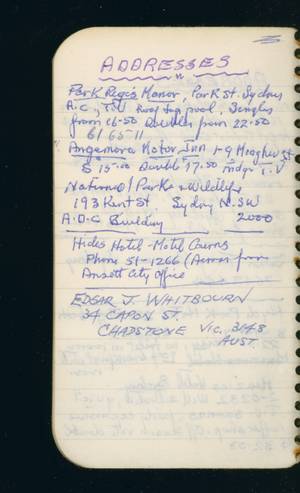 ADDRESSES
Park Regis Manor, Park St. Sydney
A.C., T.V. Roof top pool, Singles
from 16-50 Doubles from 22.50
61 65-11
Angemora Motor Inn 1-9 Meagher St
S 15.00 Double 17.50 Fridge T.V
National Parks & Wildlife
193 Kent St. Sydney N.SW
A.D.C Building 2000
Hides Hotel-Motel Cairns
Phone 51-1266 (Across from
Ansett City Office
EDGAR J. WHITBOURN
34 CAPON ST.
CHADSTONE VIC, 3148
AUST.